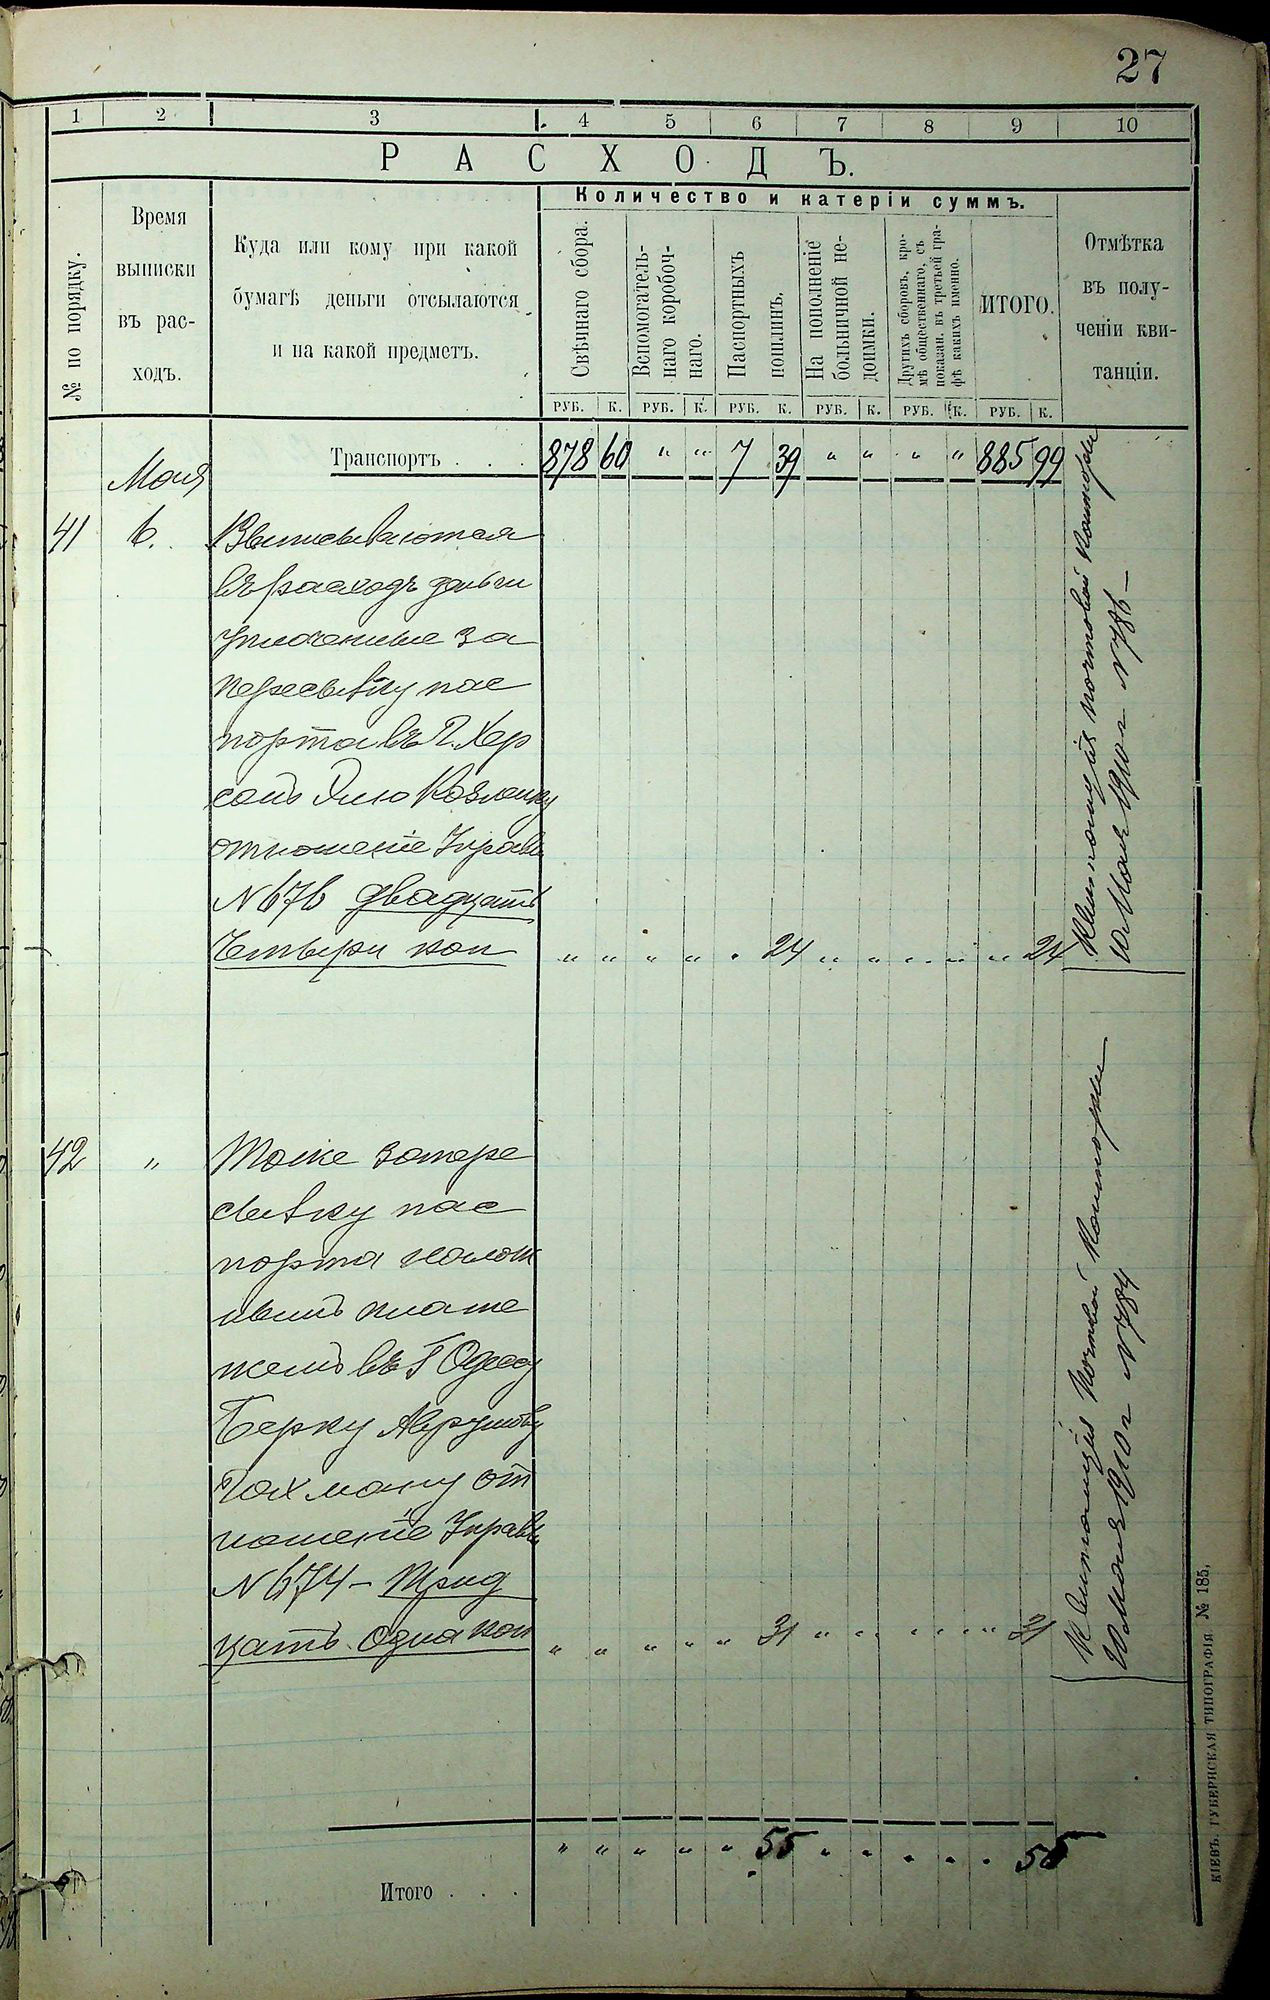 27
1 2 3 4 5 6 7 8 9 10
РАСХОДЪ.
№ по порядку.
Время
выписки
въ рас-
ходъ.
Куда или кому при какой
бумагѣ деньги отсылаются
и на какой предметъ.
Количество и катеріи суммъ.
Свѣчнаго сбора.
Вспомогатель-
наго коробоч-
наго.
Паспортныхъ
пошлинъ.
На пополненіе
больничной не-
доимки.
Другихъ сборовъ, кро-
мѣ общественнаго, съ
показан. въ третьей гра-
фѣ какихъ именно.
ИТОГО.
Отмѣтка
въ полу-
ченіи кви-
танціи.
РУБ. К. РУБ. К. РУБ. К. РУБ. К. РУБ. К. РУБ. К.
Транспортъ . . . 878 60 " " 7 39 " " " " 885 99
Мая
41 6. Выписываются
въ расходъ деньги
уплоченные за
пересылку пас
порта въ Г. Хер
сонъ
отношеніе Управы
N 676 двадцать
Четыри коп " " " " . 24 " " " " " 24
Квитанція почтовой конторы
10 Мая 1910 г N 786 —
42 " Тоже за пере
сылку пас
порта налож
нымъ плате
жемъ въ Г Одессу
Берку
Гохману от
ношеніе Управы
N 674 - Трид
цать одна коп " " " " " 31 " " " " " 31
Квитанція Почтовой Конторы
10 Мая 1910 г N 784
Итого . . . " " " " " 55 " " " " " 55
КІЕВЪ. ГУБЕРНСКАЯ ТИПОГРАФІЯ № 185.